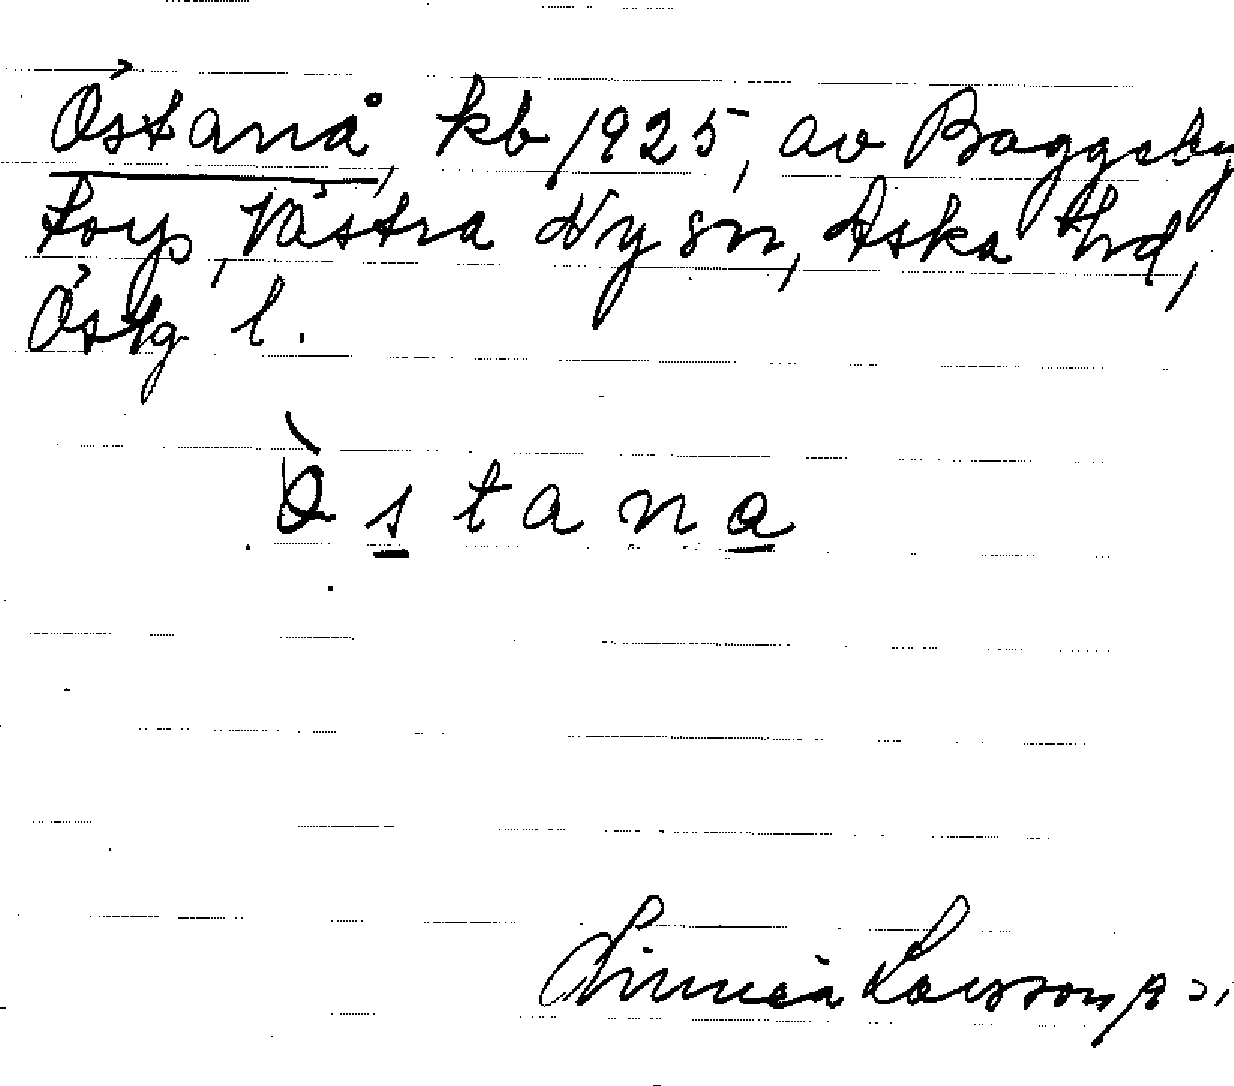 Östanå, kb 1925, av Baggeby
torp, Västra Ny sn, Aska hrd,
Östg l.
Ò s t a n a
Linnea Larsson